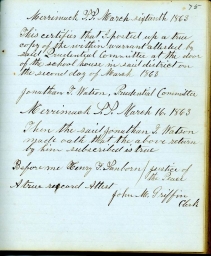 75
Merrimack S.S. March sixteenth 1863
This certifies that I posted up a true
copy of the within warrant attested by
said Prudential Committee at the door
of the school house in said district on
the second day of March 1863
Jonathan T. Watson, Prudential Committee
Merrimack S.S. March 16. 1863
Then the said Jonathan T. Watson
made oath that the above return
by him subscribed is true
Before me Henry T. Sanborn justice of
the Peace
A true record Attest
John M. Griffin
Clerk